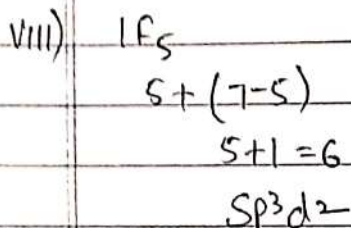 VIII) IF5
5+(7-5)
5+1=6
Sp³d2